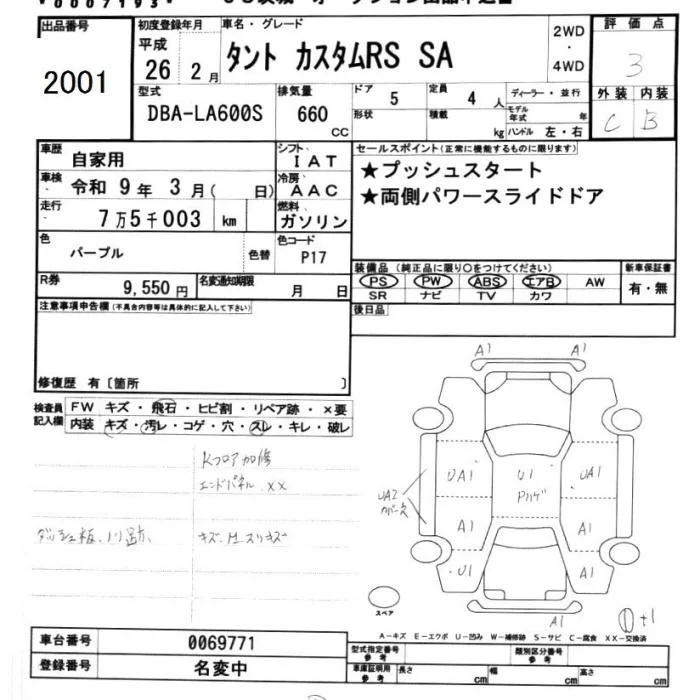 出品番号 初度登録年月 車名・グレード 2WD・4WD 評価点
2001 平成 26年 2月 タント カスタムRS SA 3
型式 排気量 ドア 定員 ディーラー・並行 外装 内装
DBA-LA600S 660 CC 5 4人 モデル年式 年 C B
形状 積載 kg ハンドル 左・右
車歴 自家用 シフト IAT セールスポイント(正常に機能するものに限ります)
車検 令和 9年 3月( 日) 冷房 AAC ★プッシュスタート
走行 7万5千003 km 燃料 ガソリン ★両側パワースライドドア
色 パープル 色替 色コード P17
装備品(純正品に限り○をつけてください) 新車保証書
R券 9,550円 名変通知期限 月 日 PS PW ABS エアB AW 有・無
SR ナビ TV カワ
注意事項申告欄(不具合内容等は具体的に記入して下さい) 後日品
修復歴 有〔箇所 〕
検査員記入欄 FW キズ・飛石・ヒビ割・リペア跡・×要
内装 キズ・汚レ・コゲ・穴・スレ・キレ・破レ
Kフロア加修
エンドパネル.××
A1 A1
UA1 U1 UA1
UA2
A1 A1
U1 A1
A1
スペア
+1
A-キズ E-エクボ U-凹み W-補修跡 S-サビ C-腐食 XX-交換済
車台番号 0069771 型式指定番号 参考 類別区分番号 参考
登録番号 名変中 車庫証明用 参考 長さ cm 幅 cm 高さ cm